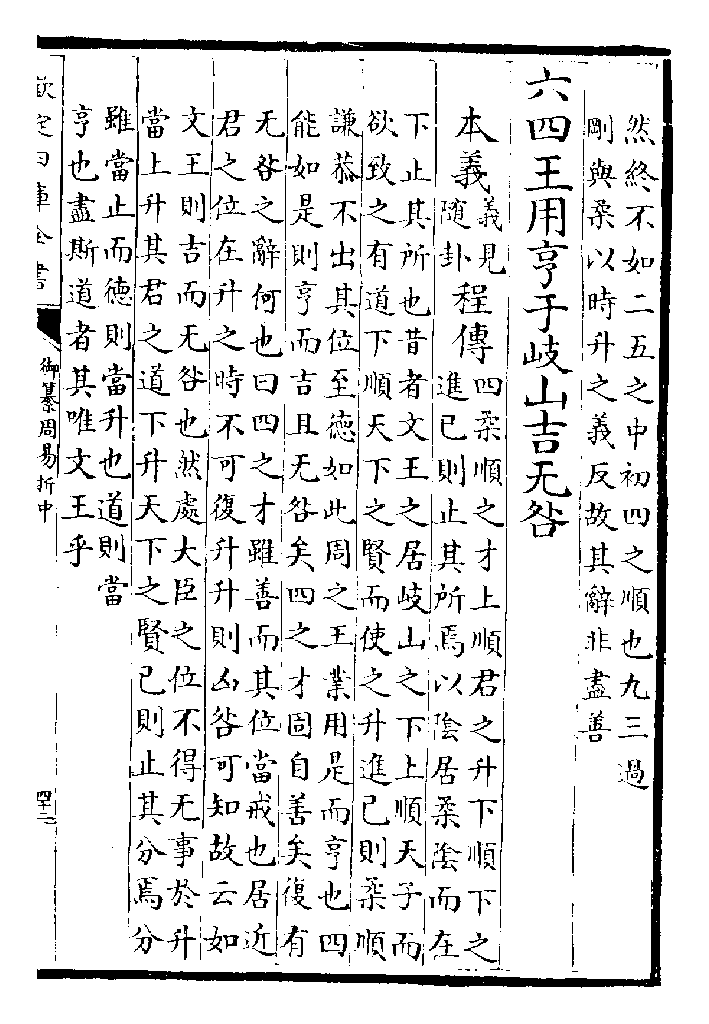 然終不如二五之中初四之順也九三過
剛與柔以時升之義反故其辭非盡善
六四王用亨于岐山吉无咎
本義義見
隨卦程傳四柔順之才上順君之升下順下之
進已則止其所焉以陰居柔陰而在
下止其所也昔者文王之居岐山之下上順天子而
欲致之有道下順天下之賢而使之升進已則柔順
謙恭不出其位至德如此周之王業用是而亨也四
能如是則亨而吉且无咎矣四之才固自善矣復有
无咎之辭何也曰四之才雖善而其位當戒也居近
君之位在升之時不可復升升則凶咎可知故云如
文王則吉而无咎也然處大臣之位不得无事於升
當上升其君之道下升天下之賢已則止其分焉分
雖當止而德則當升也道則當
亨也盡斯道者其唯文王乎
欽定四庫全書
御纂周易折中